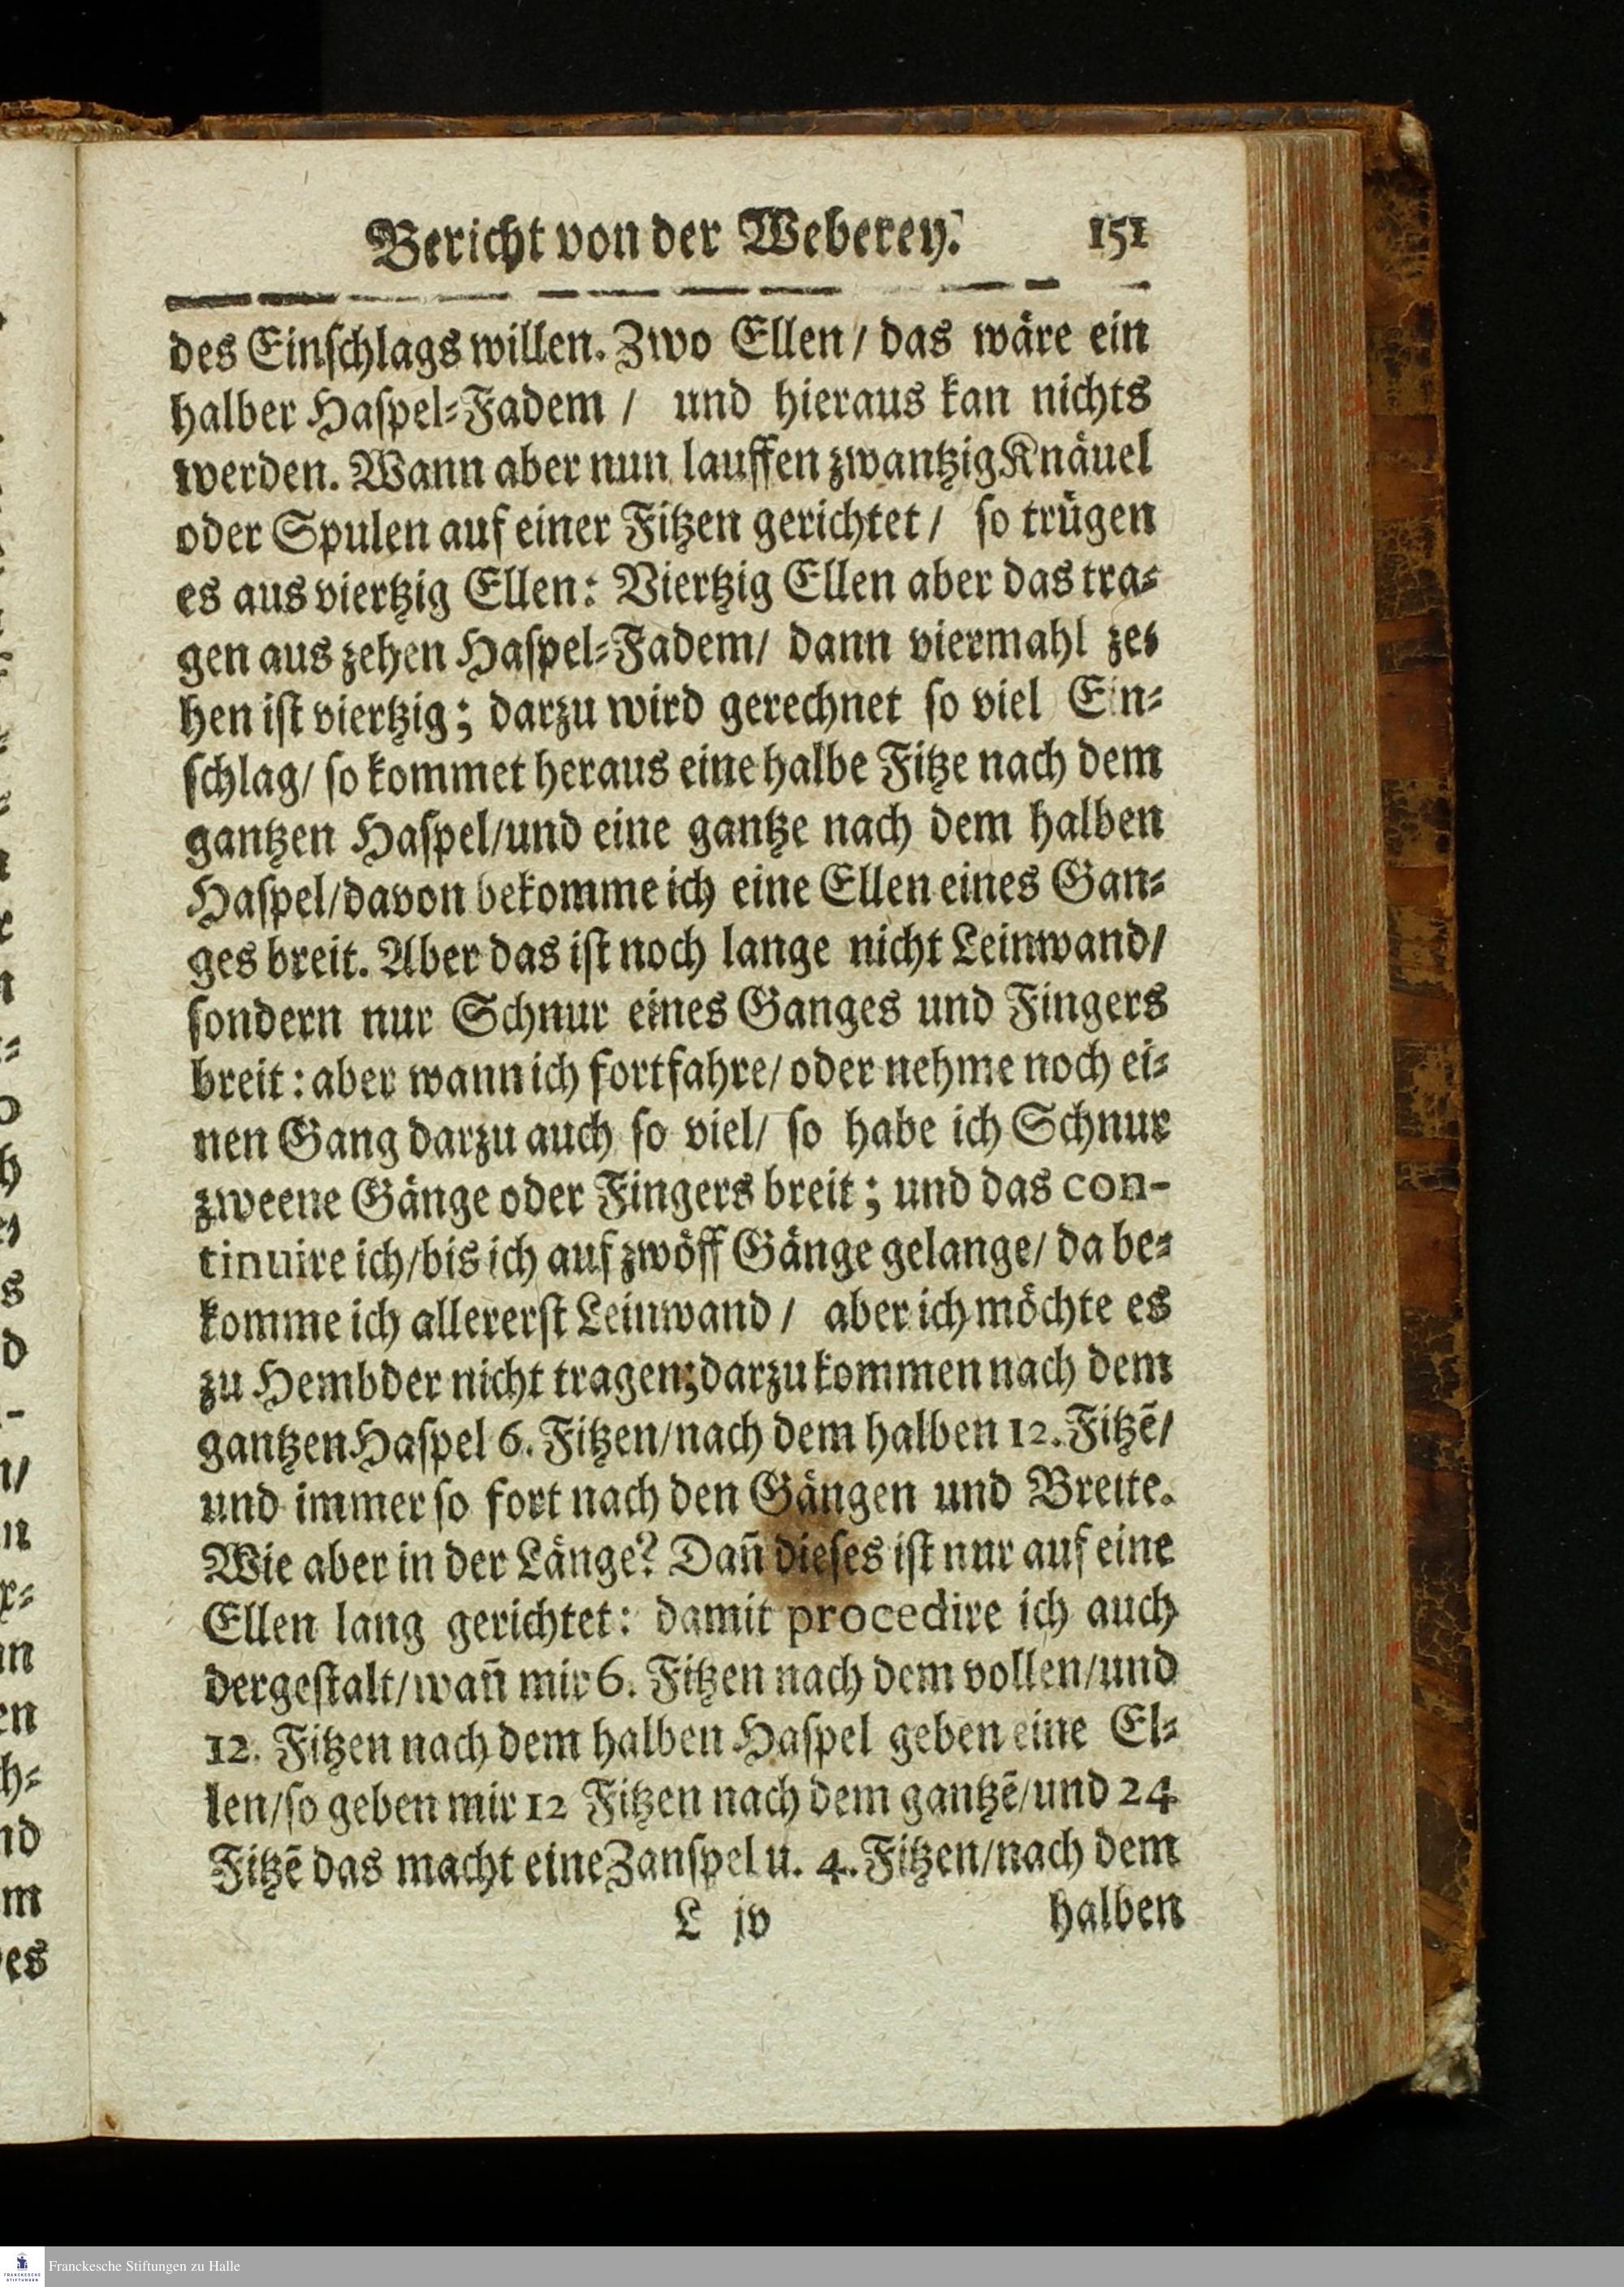 Bericht von der Weberey. 151
des Einſchlags willen. Zwo Ellen / das wäre ein
halber Haſpel-Fadem / und hieraus kan nichts
werden. Wann aber nun lauffen zwantzig Knäuel
oder Spulen auf einer Fitzen gerichtet / ſo trügen
es aus viertzig Ellen: Viertzig Ellen aber das tra-
gen aus zehen Haſpel-Fadem / dann viermahl ze-
hen iſt viertzig; darzu wird gerechnet ſo viel Ein-
ſchlag / ſo kommet heraus eine halbe Fitze nach dem
gantzen Haſpel / und eine gantze nach dem halben
Haſpel / davon bekomme ich eine Ellen eines Gan-
ges breit. Aber das iſt noch lange nicht Leinwand /
ſondern nur Schnur eines Ganges und Fingers
breit: aber wann ich fortfahre / oder nehme noch ei-
nen Gang darzu auch ſo viel / ſo habe ich Schnur
zweene Gänge oder Fingers breit; und das con-
tinuire ich / bis ich auf zwöff Gänge gelange / da be-
komme ich allererſt Leinwand / aber ich möchte es
zu Hembder nicht tragen; darzu kommen nach dem
gantzen Haſpel 6. Fitzen / nach dem halben 12. Fitzē /
und immer ſo fort nach den Gängen und Breite.
Wie aber in der Länge? Dañ dieſes iſt nur auf eine
Ellen lang gerichtet: damit procedire ich auch
dergeſtalt / wañ mir 6. Fitzen nach dem vollen / und
12. Fitzen nach dem halben Haſpel geben eine El-
len / ſo geben mir 12 Fitzen nach dem gantzē / und 24.
Fitzē das macht eine Zanſpel u. 4. Fitzen / nach dem
L iv halben
Franckesche Stiftungen zu Halle